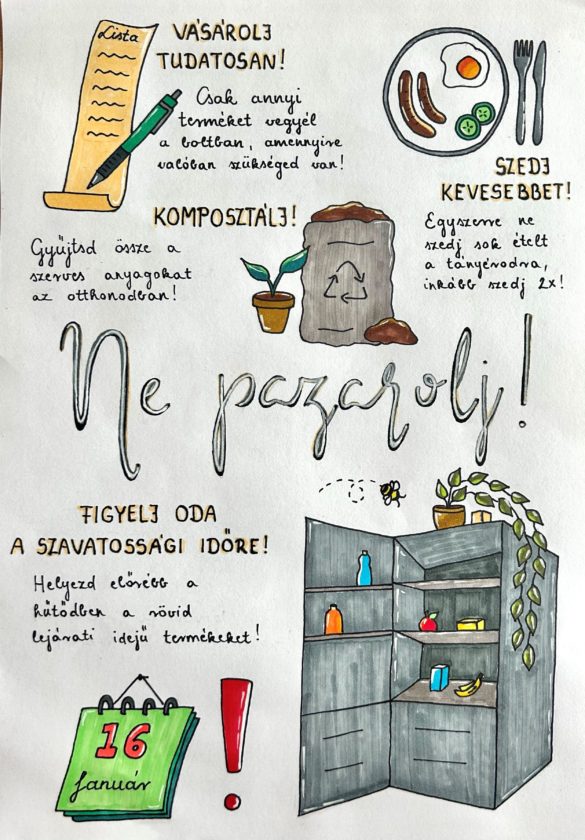 Lista
VÁSÁROLJ
TUDATOSAN!
Csak annyi
terméket vegyél
a boltban, amennyire
valóban szükséged van!
SZEDJ
KEVESEBBET!
Egyszerre ne
szedj sok ételt
a tányérodra,
inkább szedj 2x!
KOMPOSZTÁLJ!
Gyűjtsd össze a
szerves anyagokat
az otthonodban!
Ne pazarolj!
FIGYELJ ODA
A SZAVATOSSÁGI IDŐRE!
Helyezd előrébb a
hűtődben a rövid
lejárati idejű termékeket!
16
Január